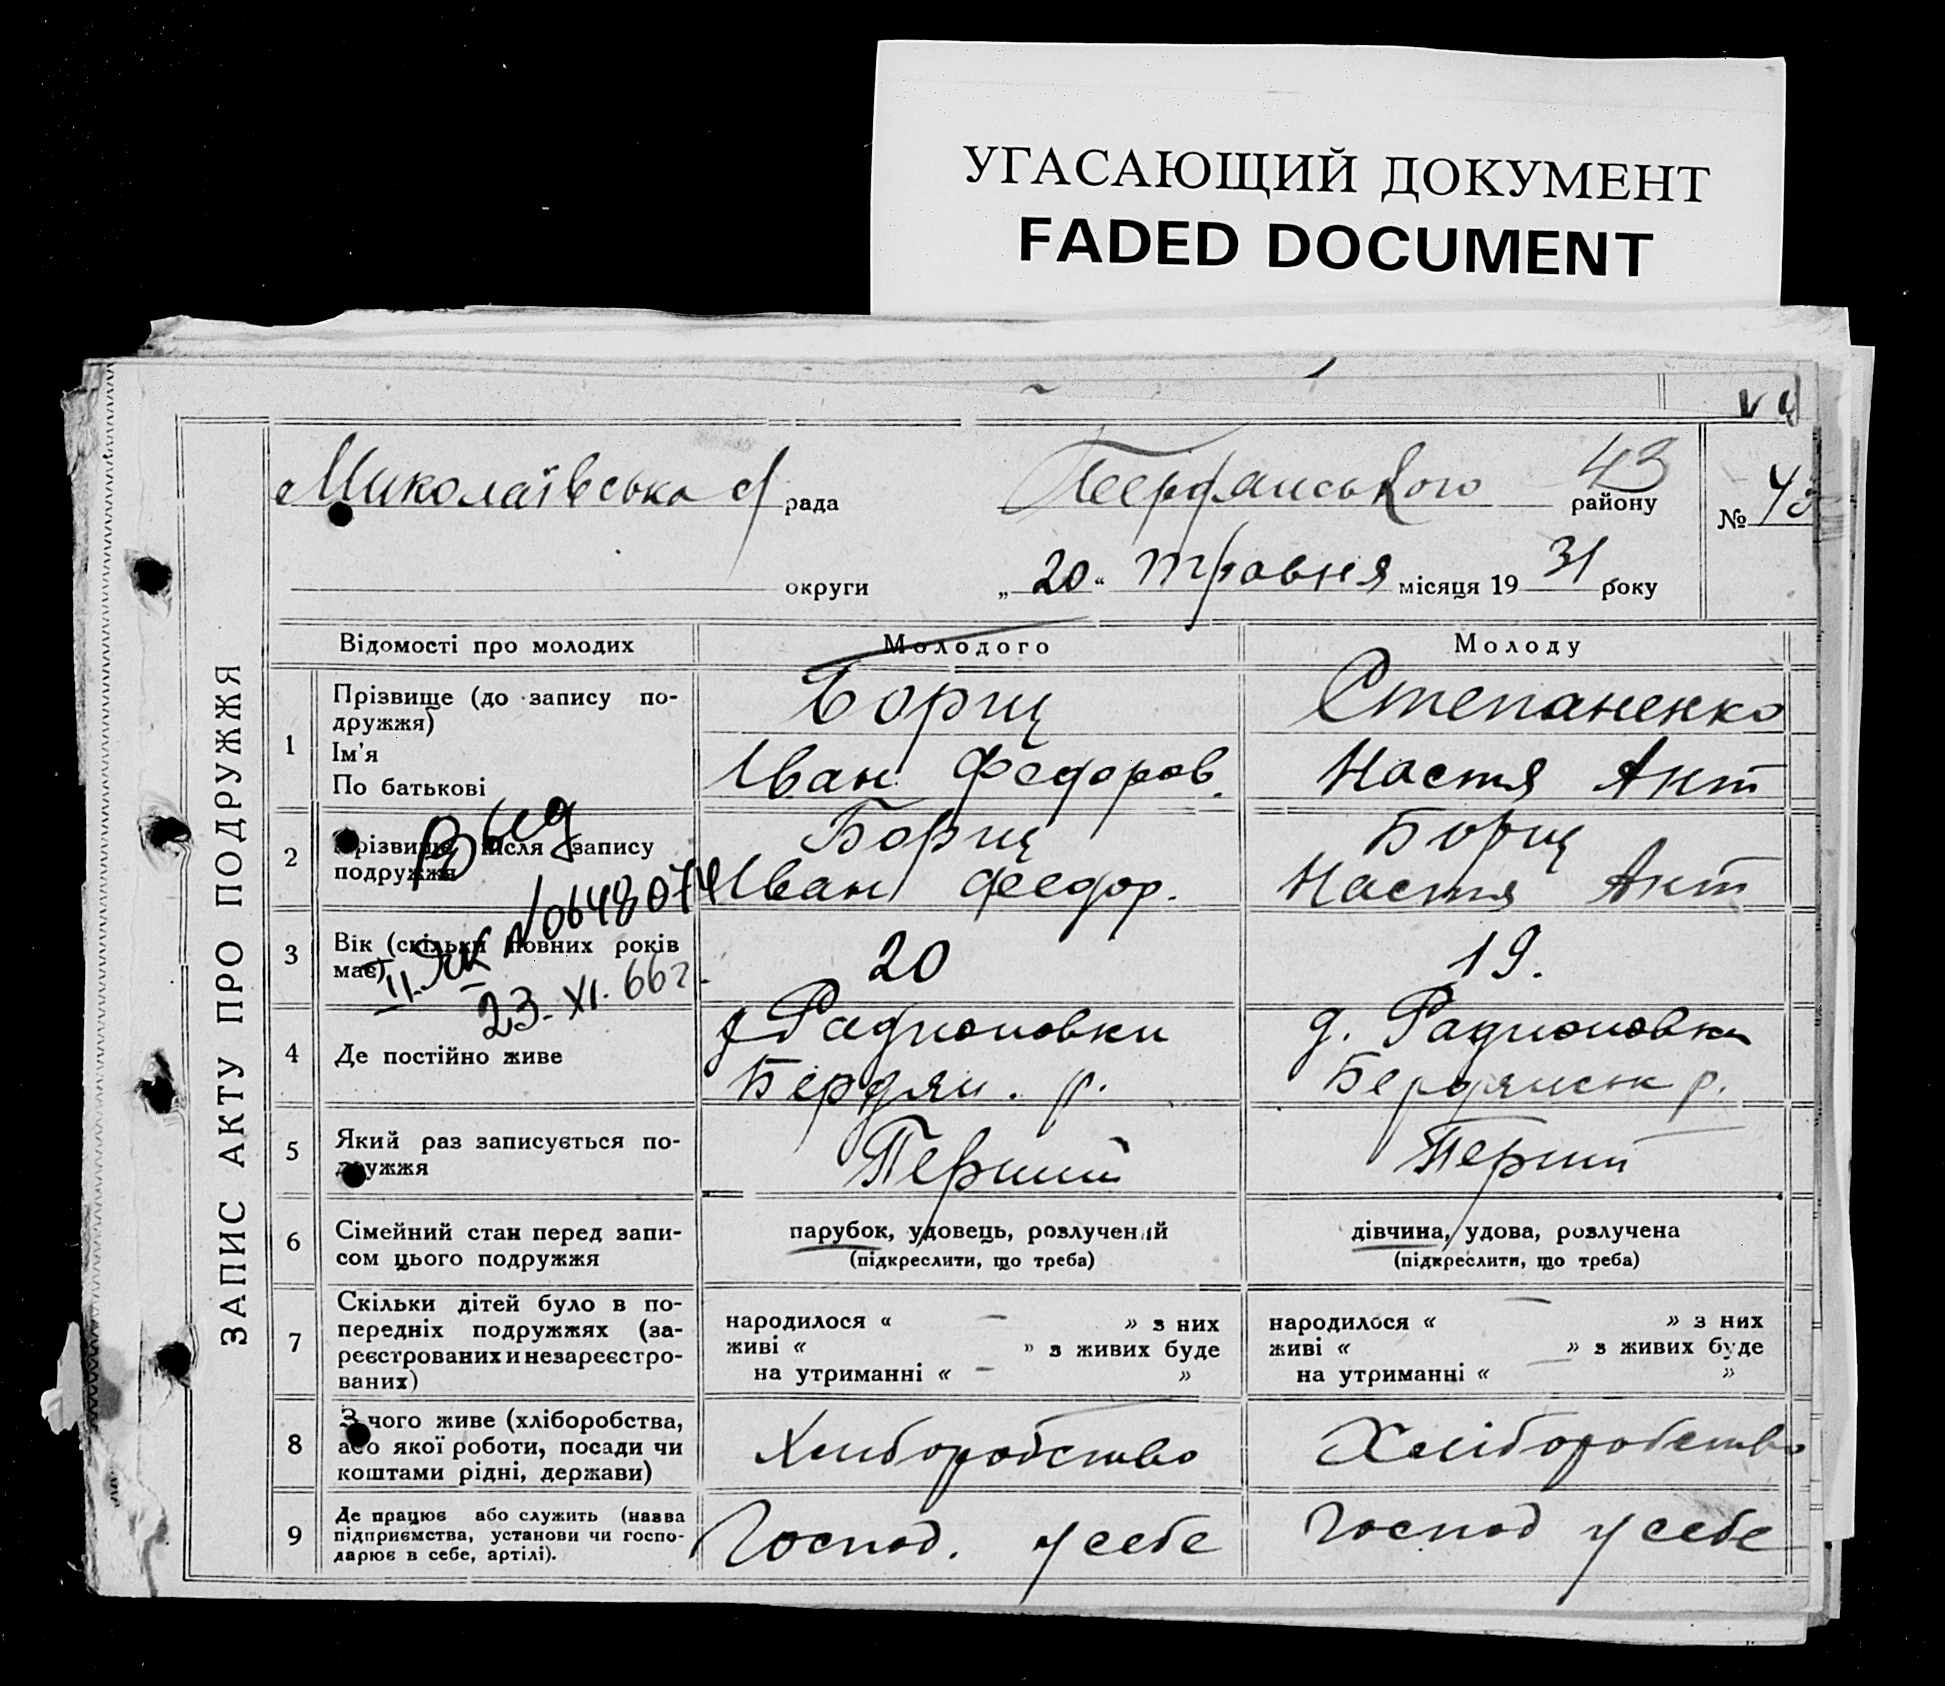 УГАСАЮЩИЙ ДОКУМЕНТ
FADED DOCUMENT
ЗАПИС АКТУ ПРО ПОДРУЖЖЯ
Миколаївська с/ рада
Бердянського району 43
№ 43
округи
„ 20 “ травня місяця 19 31 року
Відомості про молодих
Молодого
Молоду
1
Прізвище (до запису по-
дружжя)
Ім'я
По батькові
Борщ
Іван Федоров.
Степаненко
Настя Ант
2
Прізвище після запису
подружжя
Борщ
Іван Федор.
Борщ
Настя Ант
Выд
II-ЯК №0648074
23. XI. 66 г.
3
Вік (скільки повних років
має)
20
19.
4
Де постійно живе
д. Радионовки
Бердян. р.
д. Радионовки
Бердянськ р.
5
Який раз записується по-
дружжя
Перший
Перший
6
Сімейний стан перед запи-
сом цього подружжя
парубок, удовець, розлучений
(підкреслити, що треба)
дівчина, удова, розлучена
(підкреслити, що треба)
7
Скільки дітей було в по-
передніх подружжях (за-
реєстрованих и незареєстро-
ваних)
народилося « — » з них
живі « » з живих буде
на утриманні « — »
народилося « — » з них
живі « » з живих буде
на утриманні « — »
8
З чого живе (хліборобства,
або якої роботи, посади чи
коштами рідні, держави)
Хліборобство
Хліборобство
9
Де працює або служить (назва
підприємства, установи чи госпо-
дарює в себе, артілі).
Господ. у себе
Господ у себе